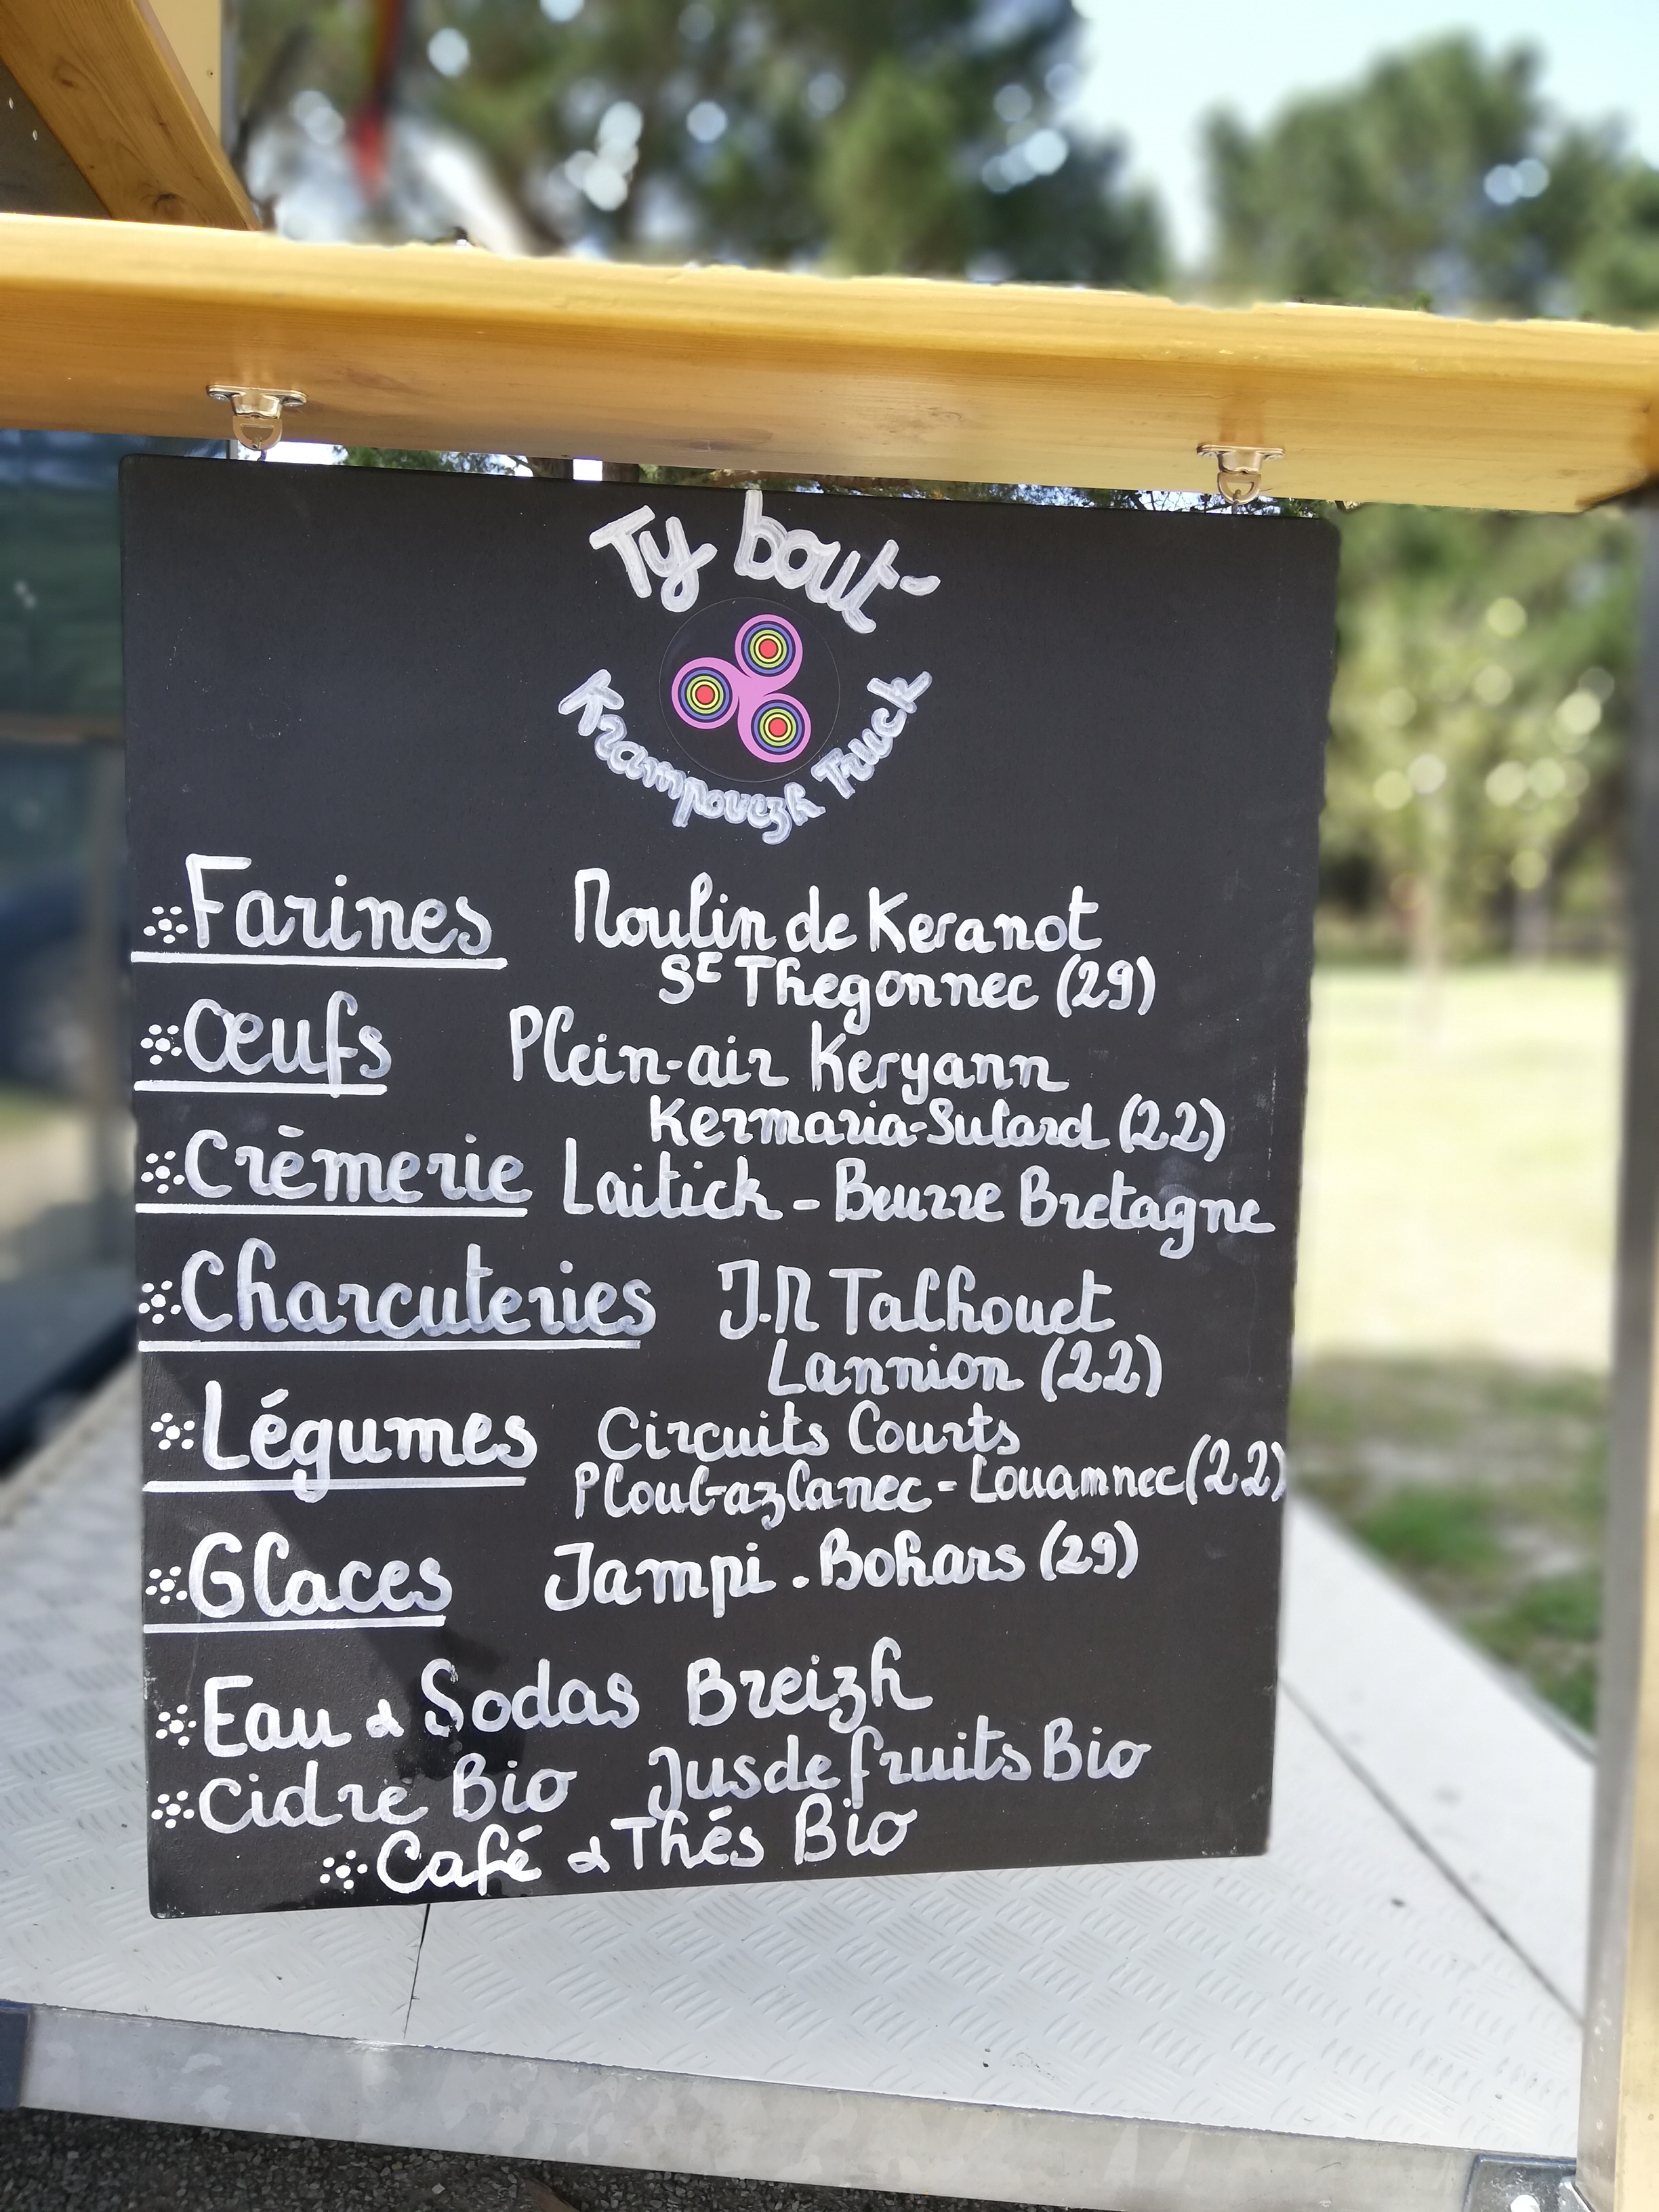 Ty bout-
Krampouezh Truck
Farines Moulin de Keranot
St Thegonnec (29)
Œufs Plein-air Keryann
Kermaria-Sulard (22)
Crèmerie Laitick - Beurre Bretagne
Charcuteries J.M Talhouet
Lannion (22)
Légumes Circuits Courts
Ploul-azlanec - Louannec (22)
Glaces Jampi . Bohars (29)
Eau & Sodas Breizh
Cidre Bio Jus de fruits Bio
Café & Thés Bio